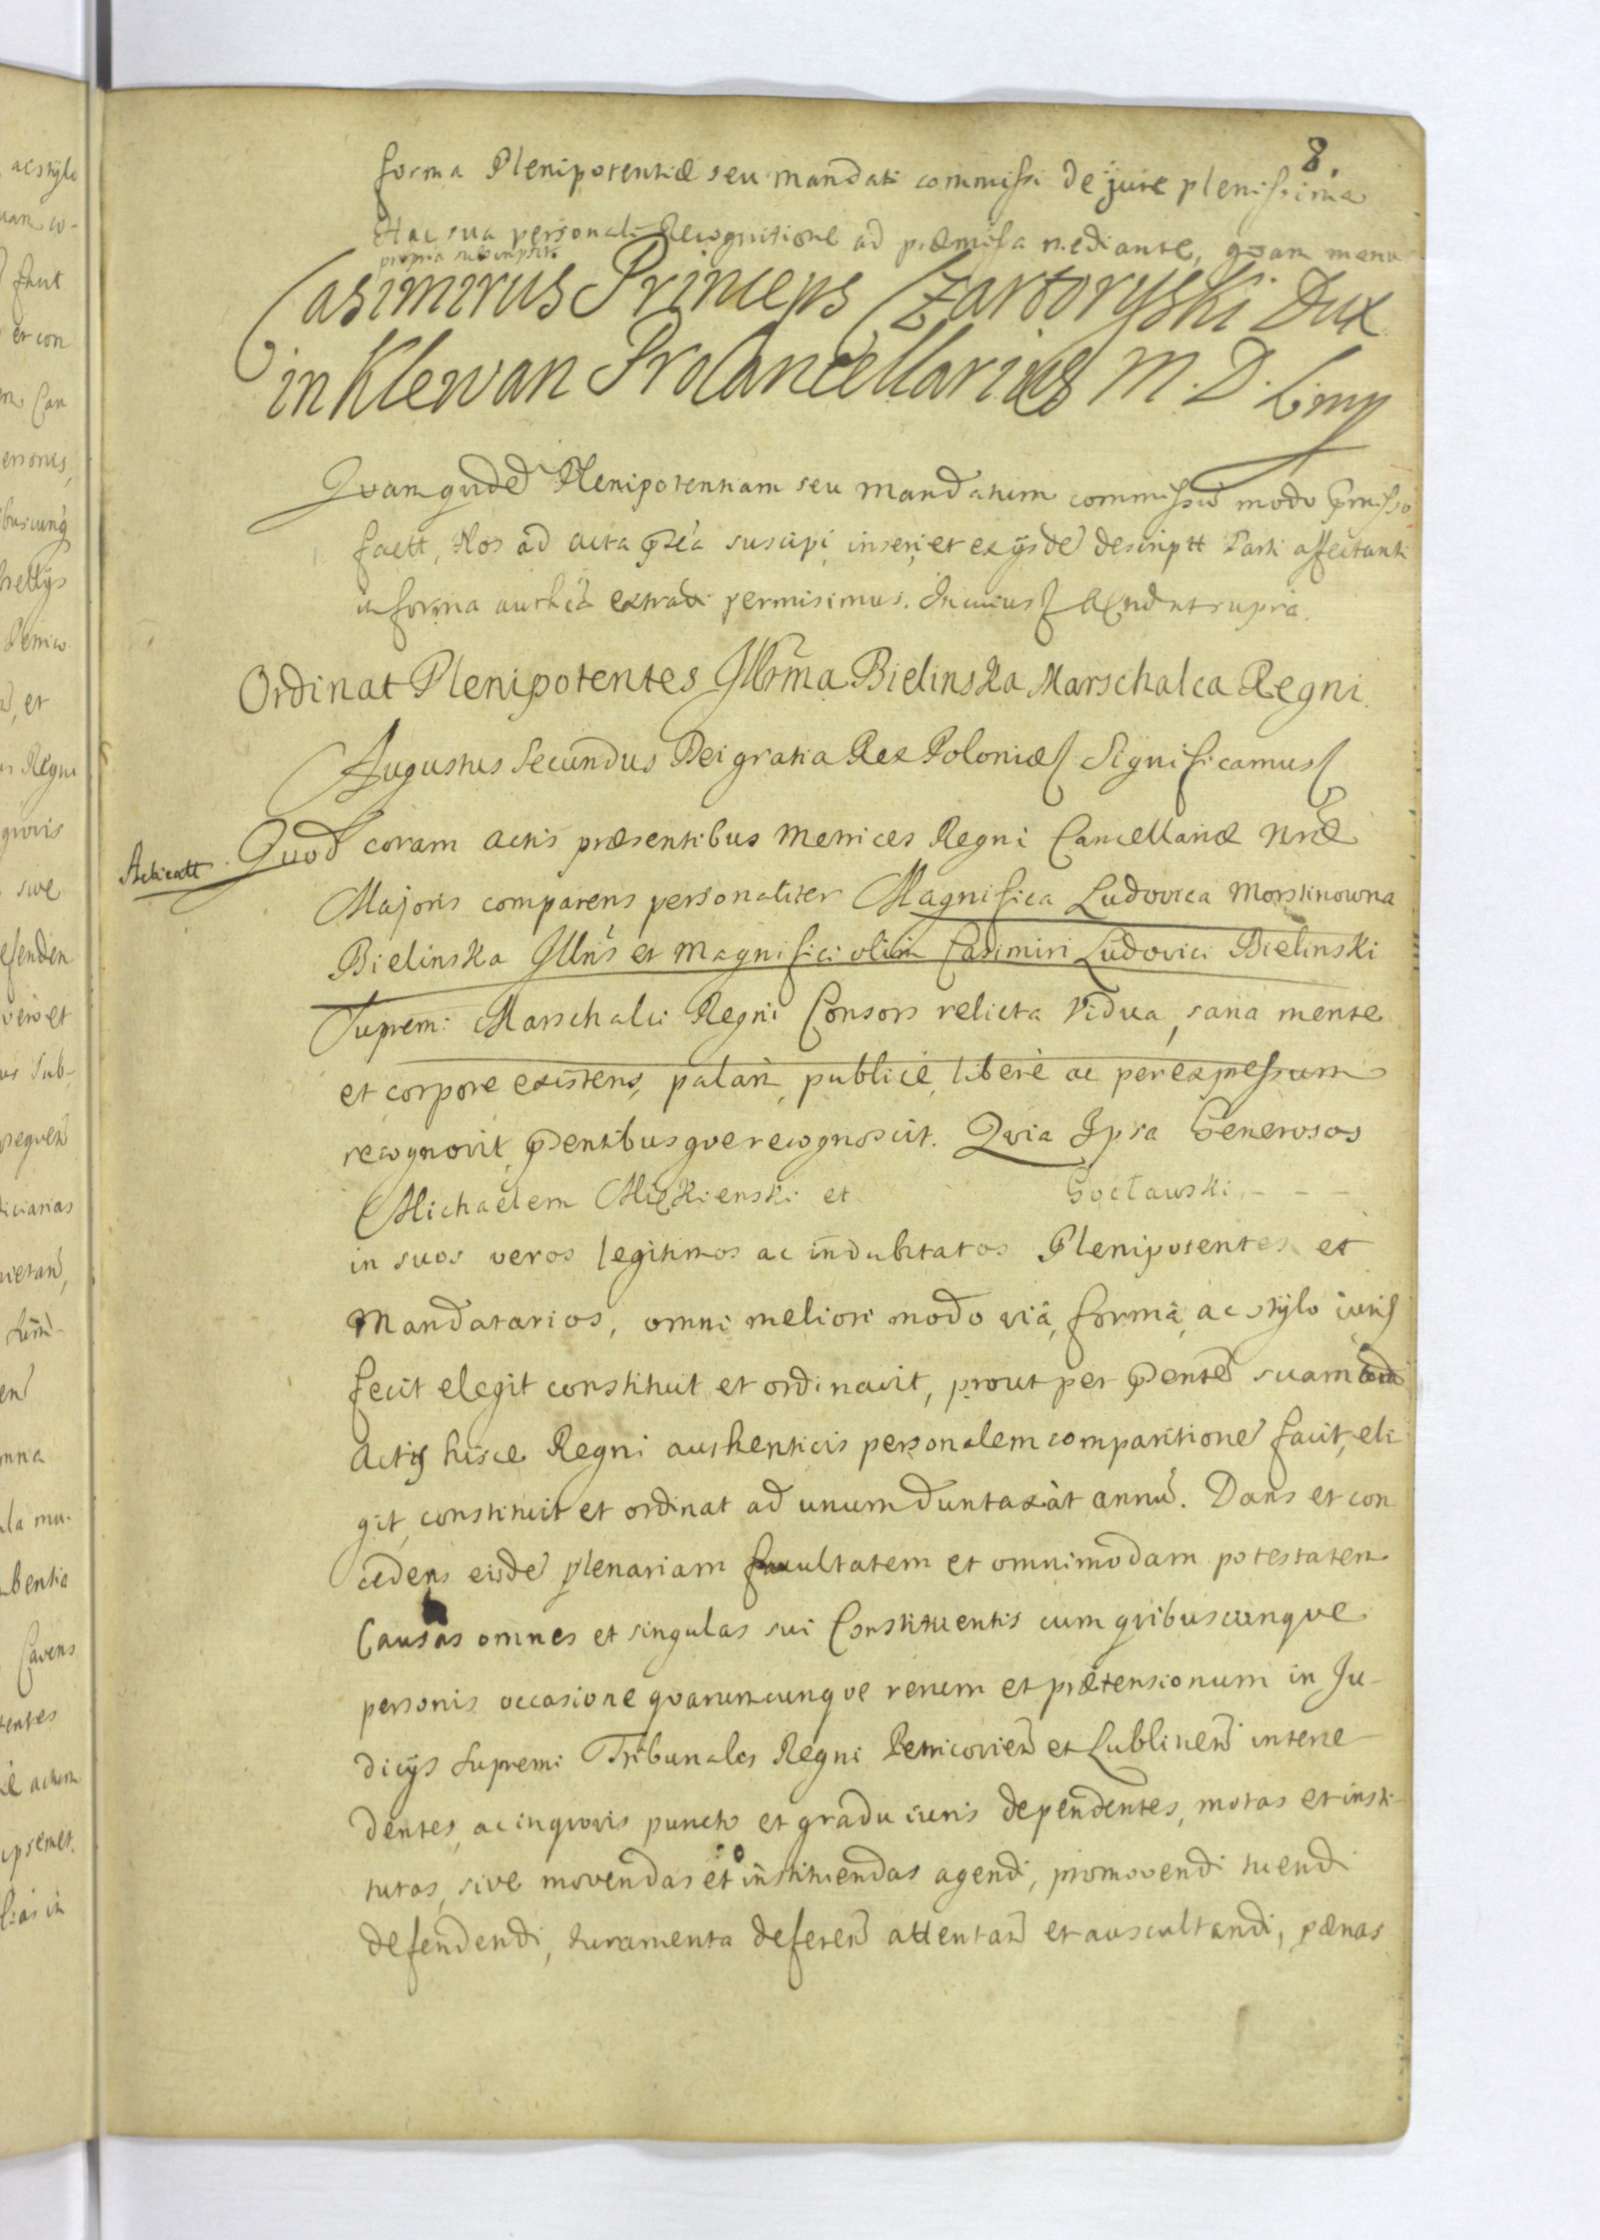 8.
forma Plenipotentiæ seu mandati commissi de jure plenissima
Hac sua personali Recognitione ad præmissa mediante, quam manu
propria subscripsit.
Casimirus Princeps Czartoryski Dux
in Klewan ProCancellarius M. D. L. mp
Quam quidẽ Plenipotentiam seu mandatum commissũ modo
factt, Nos ad acta suscipi, inseri, et ex ijsdẽ descriptt Parti affectanti
in forma extradi permisimus. In cuius ut supra.
Ordinat Plenipotentes Illrm̃a Bielinska Marschalca Regni.
Augustus Secundus Dei gratia Rex Poloniæ Significamus
Quod coram actis præsentibus Metrices Regni Cancellariæ Nræ̃
Acticatt
Majoris comparens personaliter Magnifica Ludovica Morstinowna
Bielinska Illris̃ et Magnifici olim Casimiri Ludovici Bielinski
Supremi Marschalci Regni Consors relicta Vidua, sana mente
et corpore existens, palam, publicè, liberè ac per expressum
recognovit, pentibusque recognoscit. Quia Ipsa Generosos
Michaelem Miękienski et Gocławski - - -
in suos veros legitimos ac indubitatos Plenipotentes et
Mandatarios, omni meliori modo viâ, formâ, ac stylo iuris
fecit elegit constituit et ordinavit, prout per pentẽ suam
Actis hisce Regni authenticis personalem comparitionẽ facit, eli-
git, constituit et ordinat ad unum duntaxàt annũ. Dans et con
cedens eisdẽ plenariam facultatem et omnimodam potestatem
Causas omnes et singulas sui Constituentis cum quibuscunque
personis occasione quaruncunque rerum et prætensionum in Ju-
dicijs Supremi Tribunalis Regni Petricovieñ et Lublineñ interce-
dentes, ac in quovis puncto et gradu iuris dependentes, motas et insti-
tutas, sive movendas et instituendas agendi, promovendi tuendi
defendendi, iuramenta defereñ attentañ et auscultandi, pænas